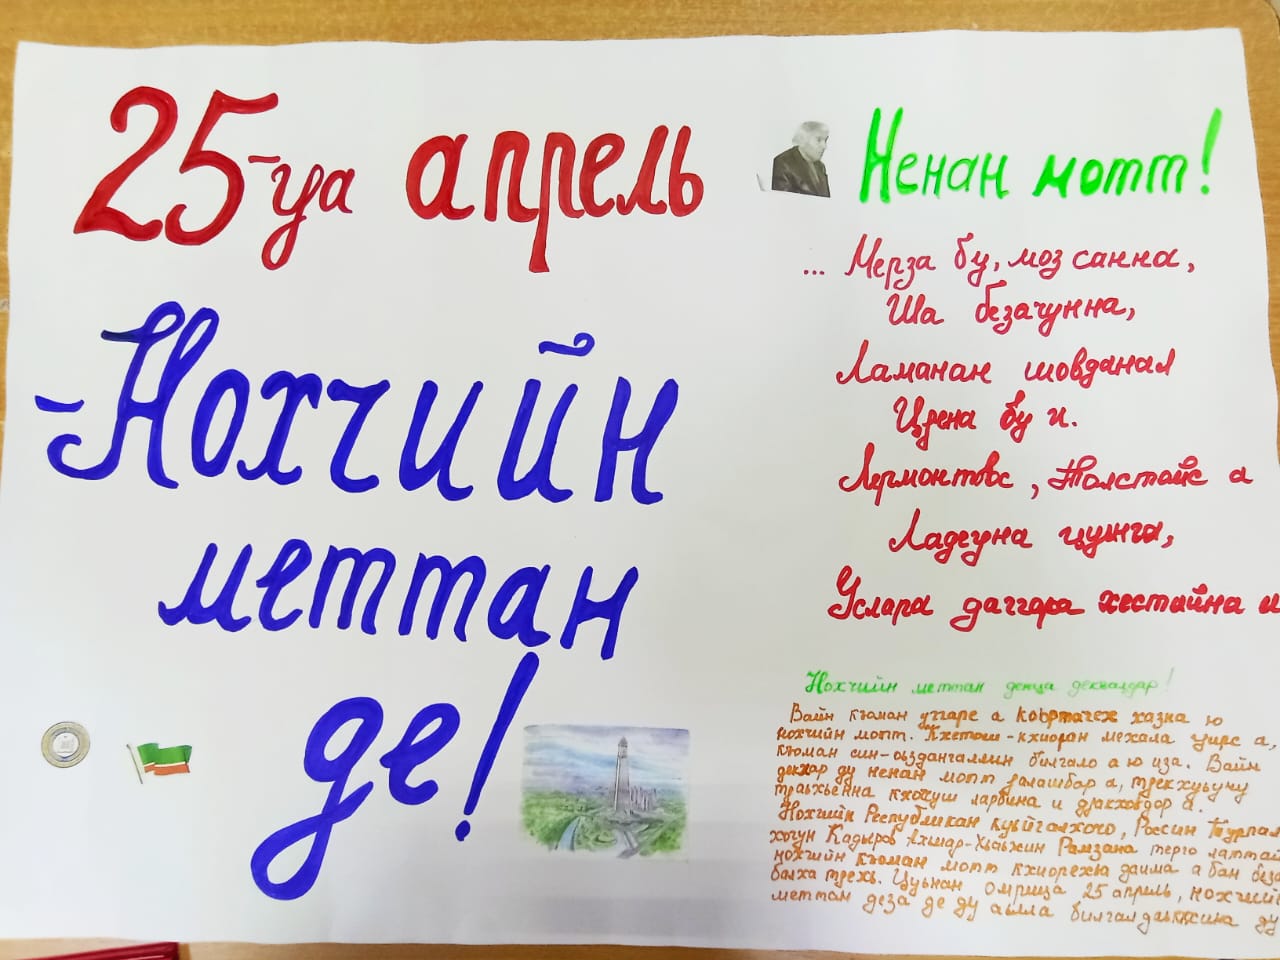 25-гӀа апрель
-Нохчийн
меттан
де!
Ненан мотт!
... Мерза бу, моз санна,
Ша безачунна,
Ламанан шовданал
ЦӀена бу и.
Лермонтовс, Толстойс а
Ладегӏна цуьнга,
Услара даггара хестийна и
Нохчийн меттан денца декъалдар!
Вайн къман уггаре а коьртачех хазна ю
нохчийн мотт. Кхетош-кхиоран мехала гӏирс а,
къман син-оьздангаллин билгало а ю иза. Вайн
декхар ду ненан мотт ӏалашбар а, тӏекхуьучу
тӏаьхьенна кхочуш ларбина и дӏакховдор а.
Нохчийн Республикан куьйгалхочо, Россин Турпал
хочун Кадыров Ахмат-Хьаьжин Рамзана терго латтай
нохчийн къман мотт кхиорехьа даима а бан беза
балха тӏехь. Цуьнан омрица 25 апрель, нохчийн
меттан деза де ду аьлла билгалдаьккхина ду